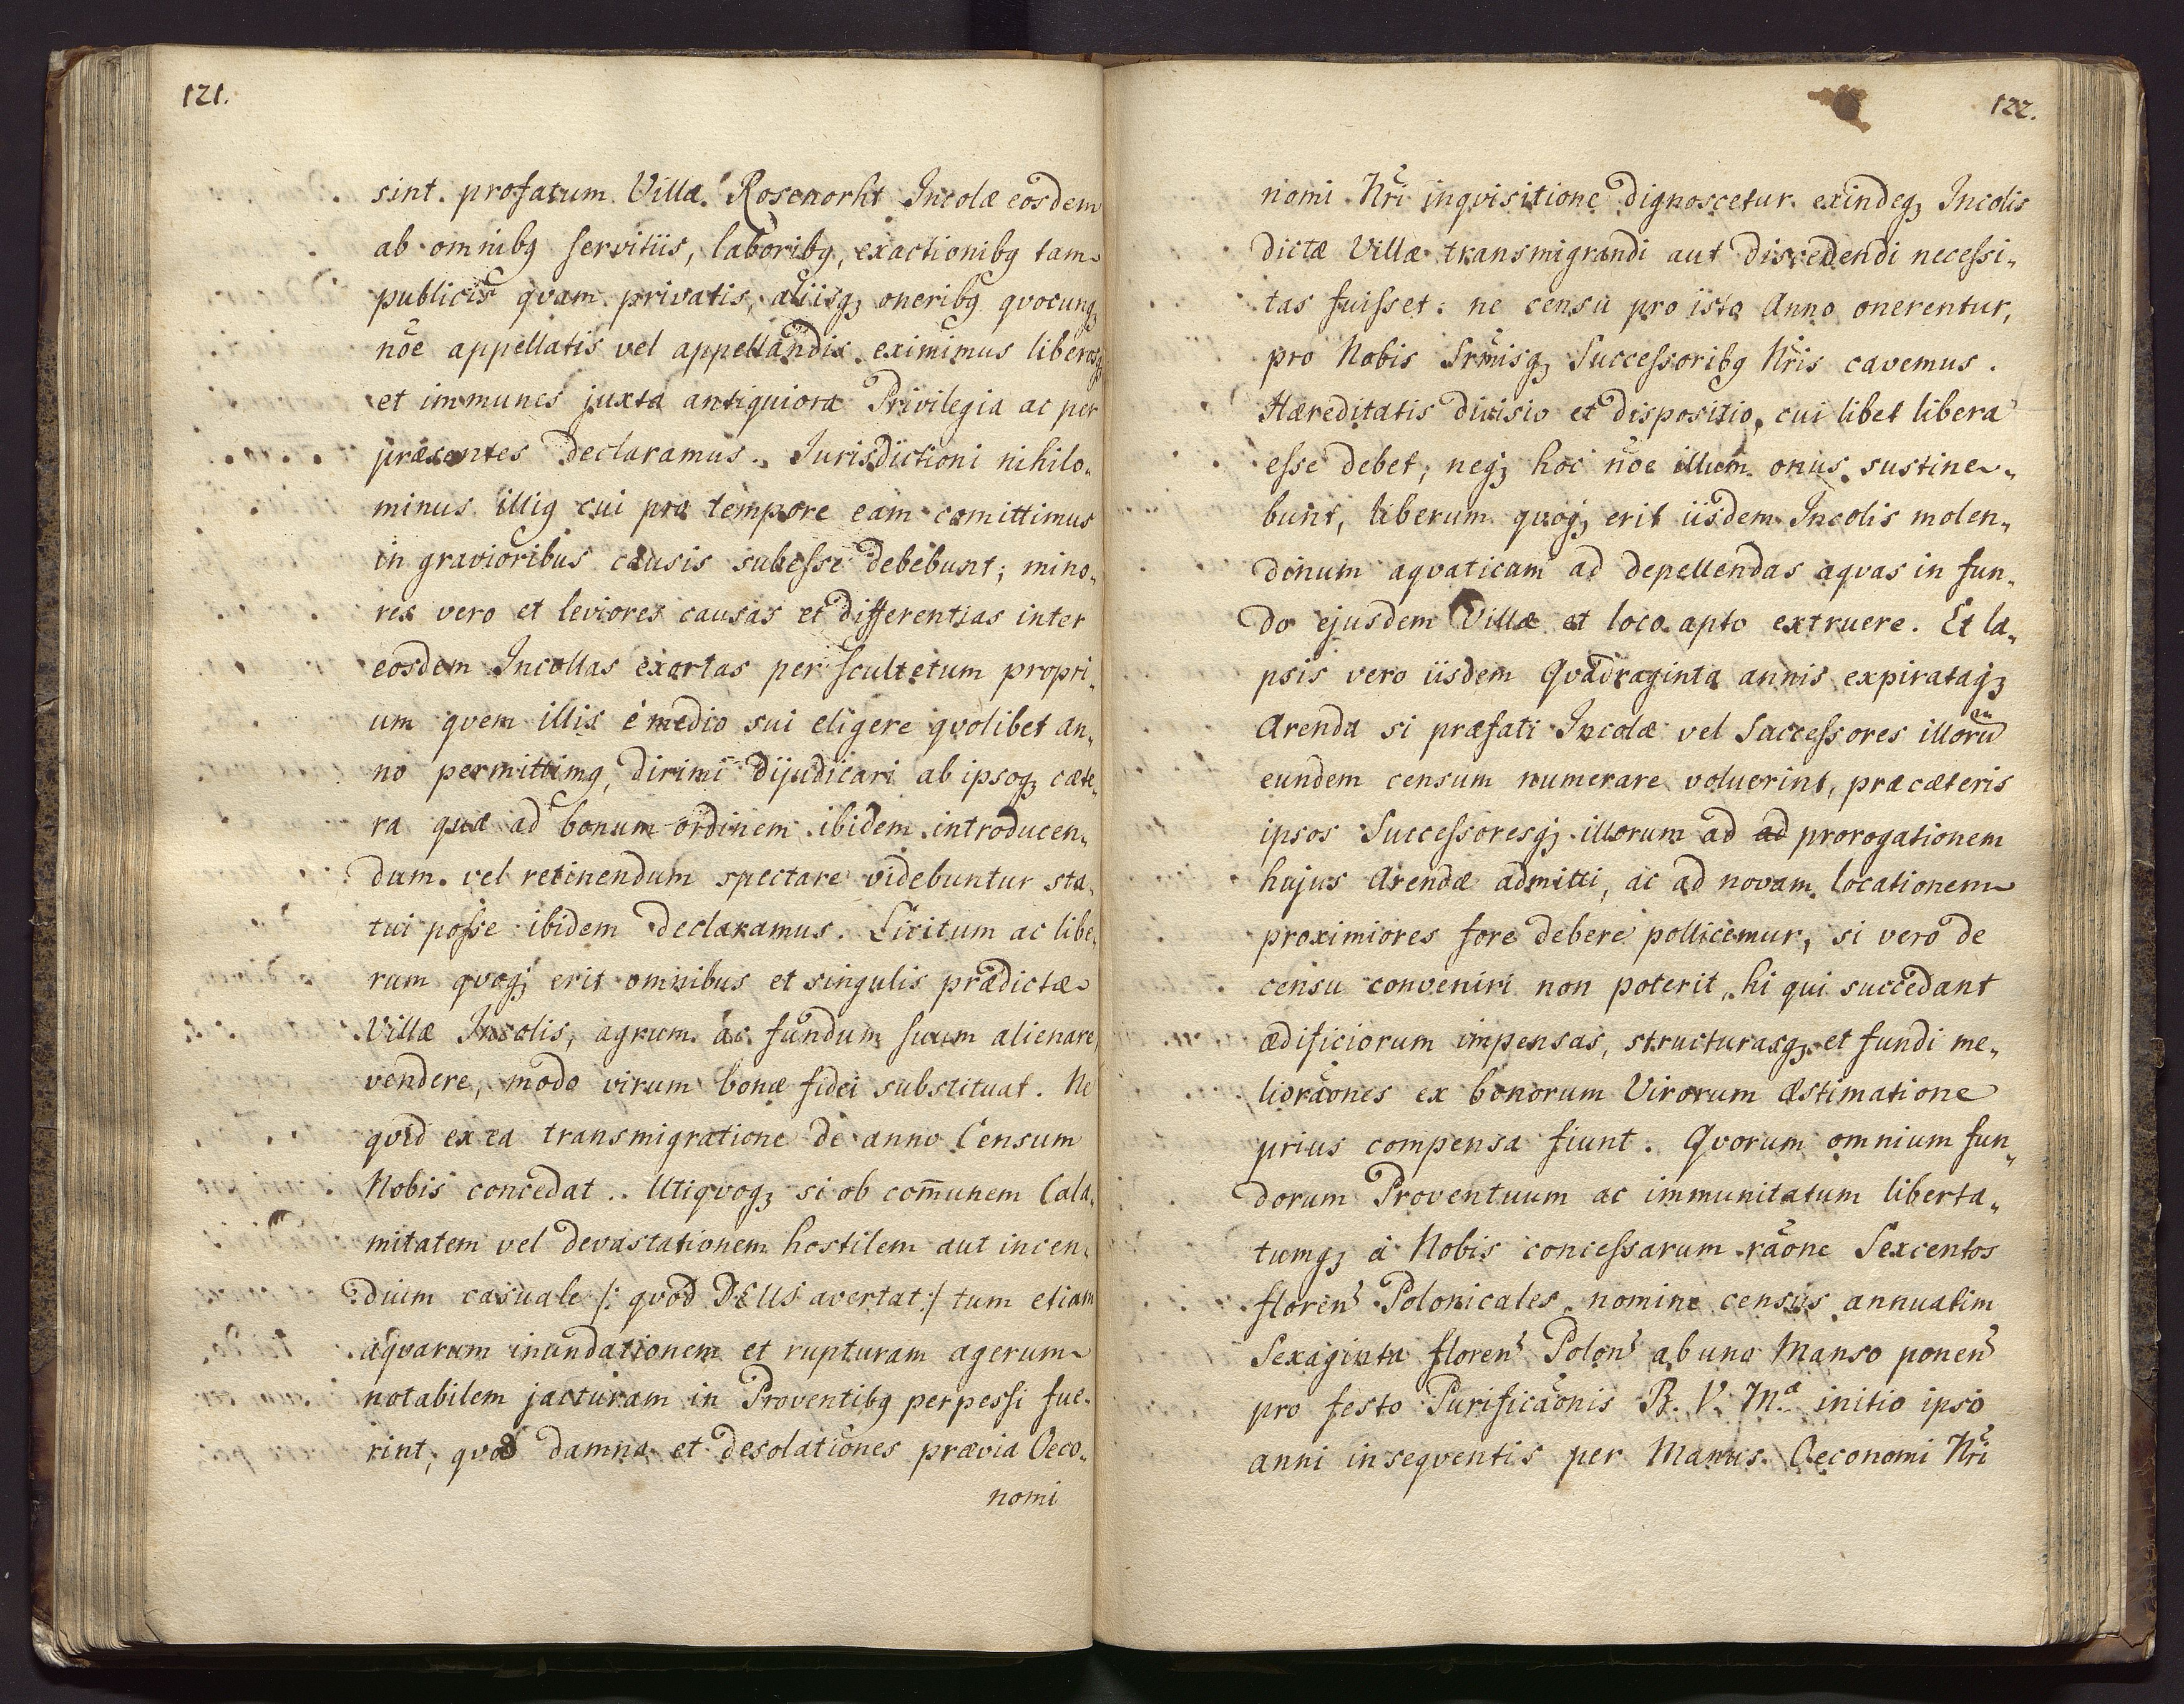 121.
sint. profatum Villæ Rosenorht Incolæ eosdem
ab omnibq servitiis, laboribq, exactionibq tam
publicis qvam privatis, aliisqꝫ oneribq qvocunqꝫ
nöe appellatis vel appellandis eximimus liberosqꝫ
et immunes juxta antiquiora Privilegia ac per
præsentes declaramus. Jurisdictioni nihilo„
minus illiq cui pro tempore eam comittimus
in gravioribus causis subesse debebunt; mino„
res vero et leviores causas et differentias inter
eosdem Incollas exortas per scultetum propri„
um qvem illis è medio sui eligere qvolibet an„
no permittimq, dirimi dijudicari ab ipsoqꝫ cæte„
ra quæ ad bonum ordinem ibidem introducen„
dum vel retinendum spectare videbuntur sta„
tui posse ibidem declaramus. Licitum ac libe„
rum qvoqꝫ erit omnibus et singulis prædictæ
Villæ Incolis, agrum ac fundum suum alienare,
vendere, modo virum bonæ fidei substituat. Ne
qvid ex ea transmigratione de anno Censum
Nobis concedat.. Utiqvoqꝫ si ob com̄unem Cala„
mitatem vel devastationem hostilem aut incen„
dium casuale /: qvod DEUS avertat :/ tum etiam
aqvarum inundationem et rupturam agerum
notabilem jacturam in Proventibq perpessi fue„
rint, qvod damna et desolationes prævia Oeco„
nomi
122.
nomi Nr̃i inqvisitione dignoscetur exindeqꝫ Incolis
dictæ Villæ transmigrandi aut discedendi necessi„
tas fuisset: ne censu pro isto Anno onerentur,
pro Nobis Srmisqꝫ Successoribq Nr̃is cavemus.
Hæreditatis divisio et dispositio, cui libet libera
esse debet, neqꝫ hoc nöe illum onus sustine„
bunt, liberum qvoqꝫ erit iisdem Incolis molen„
dinum aqvaticam ad depellendas aqvas in fun„
do ejusdem Villæ et loco apto extruere. Et la„
psis vero iisdem Qvadraginta annis expirataqꝫ
Arenda si præfati Incolæ vel Successores illorū
eundem censum numerare voluerint, præ cæteris
ipsos Successoresqꝫ illorum ad ad prorogationem
hujus Arendæ admitti, ac ad novam locationem
proximiores fore debere pollicemur, si vero de
censu conveniri non poterit, hi qui succedant
ædificiorum impensas, structurasqꝫ et fundi me„
lioräones ex bonorum Virorum æstimatione
prius compensa fiunt. Qvorum omnium fun„
dorum Proventuum ac immunitatum liberta„
tumqꝫ à Nobis concessarum räone Sexcentos
floren̉ Polonicales nomine census annuatim
Sexaginta floren̉ Polon̉ ab uno Manso ponen̉
pro festo Purificäonis B. V. Mᵃ initio ipso
anni inseqventis per Manus Oeconomi Nr̃i